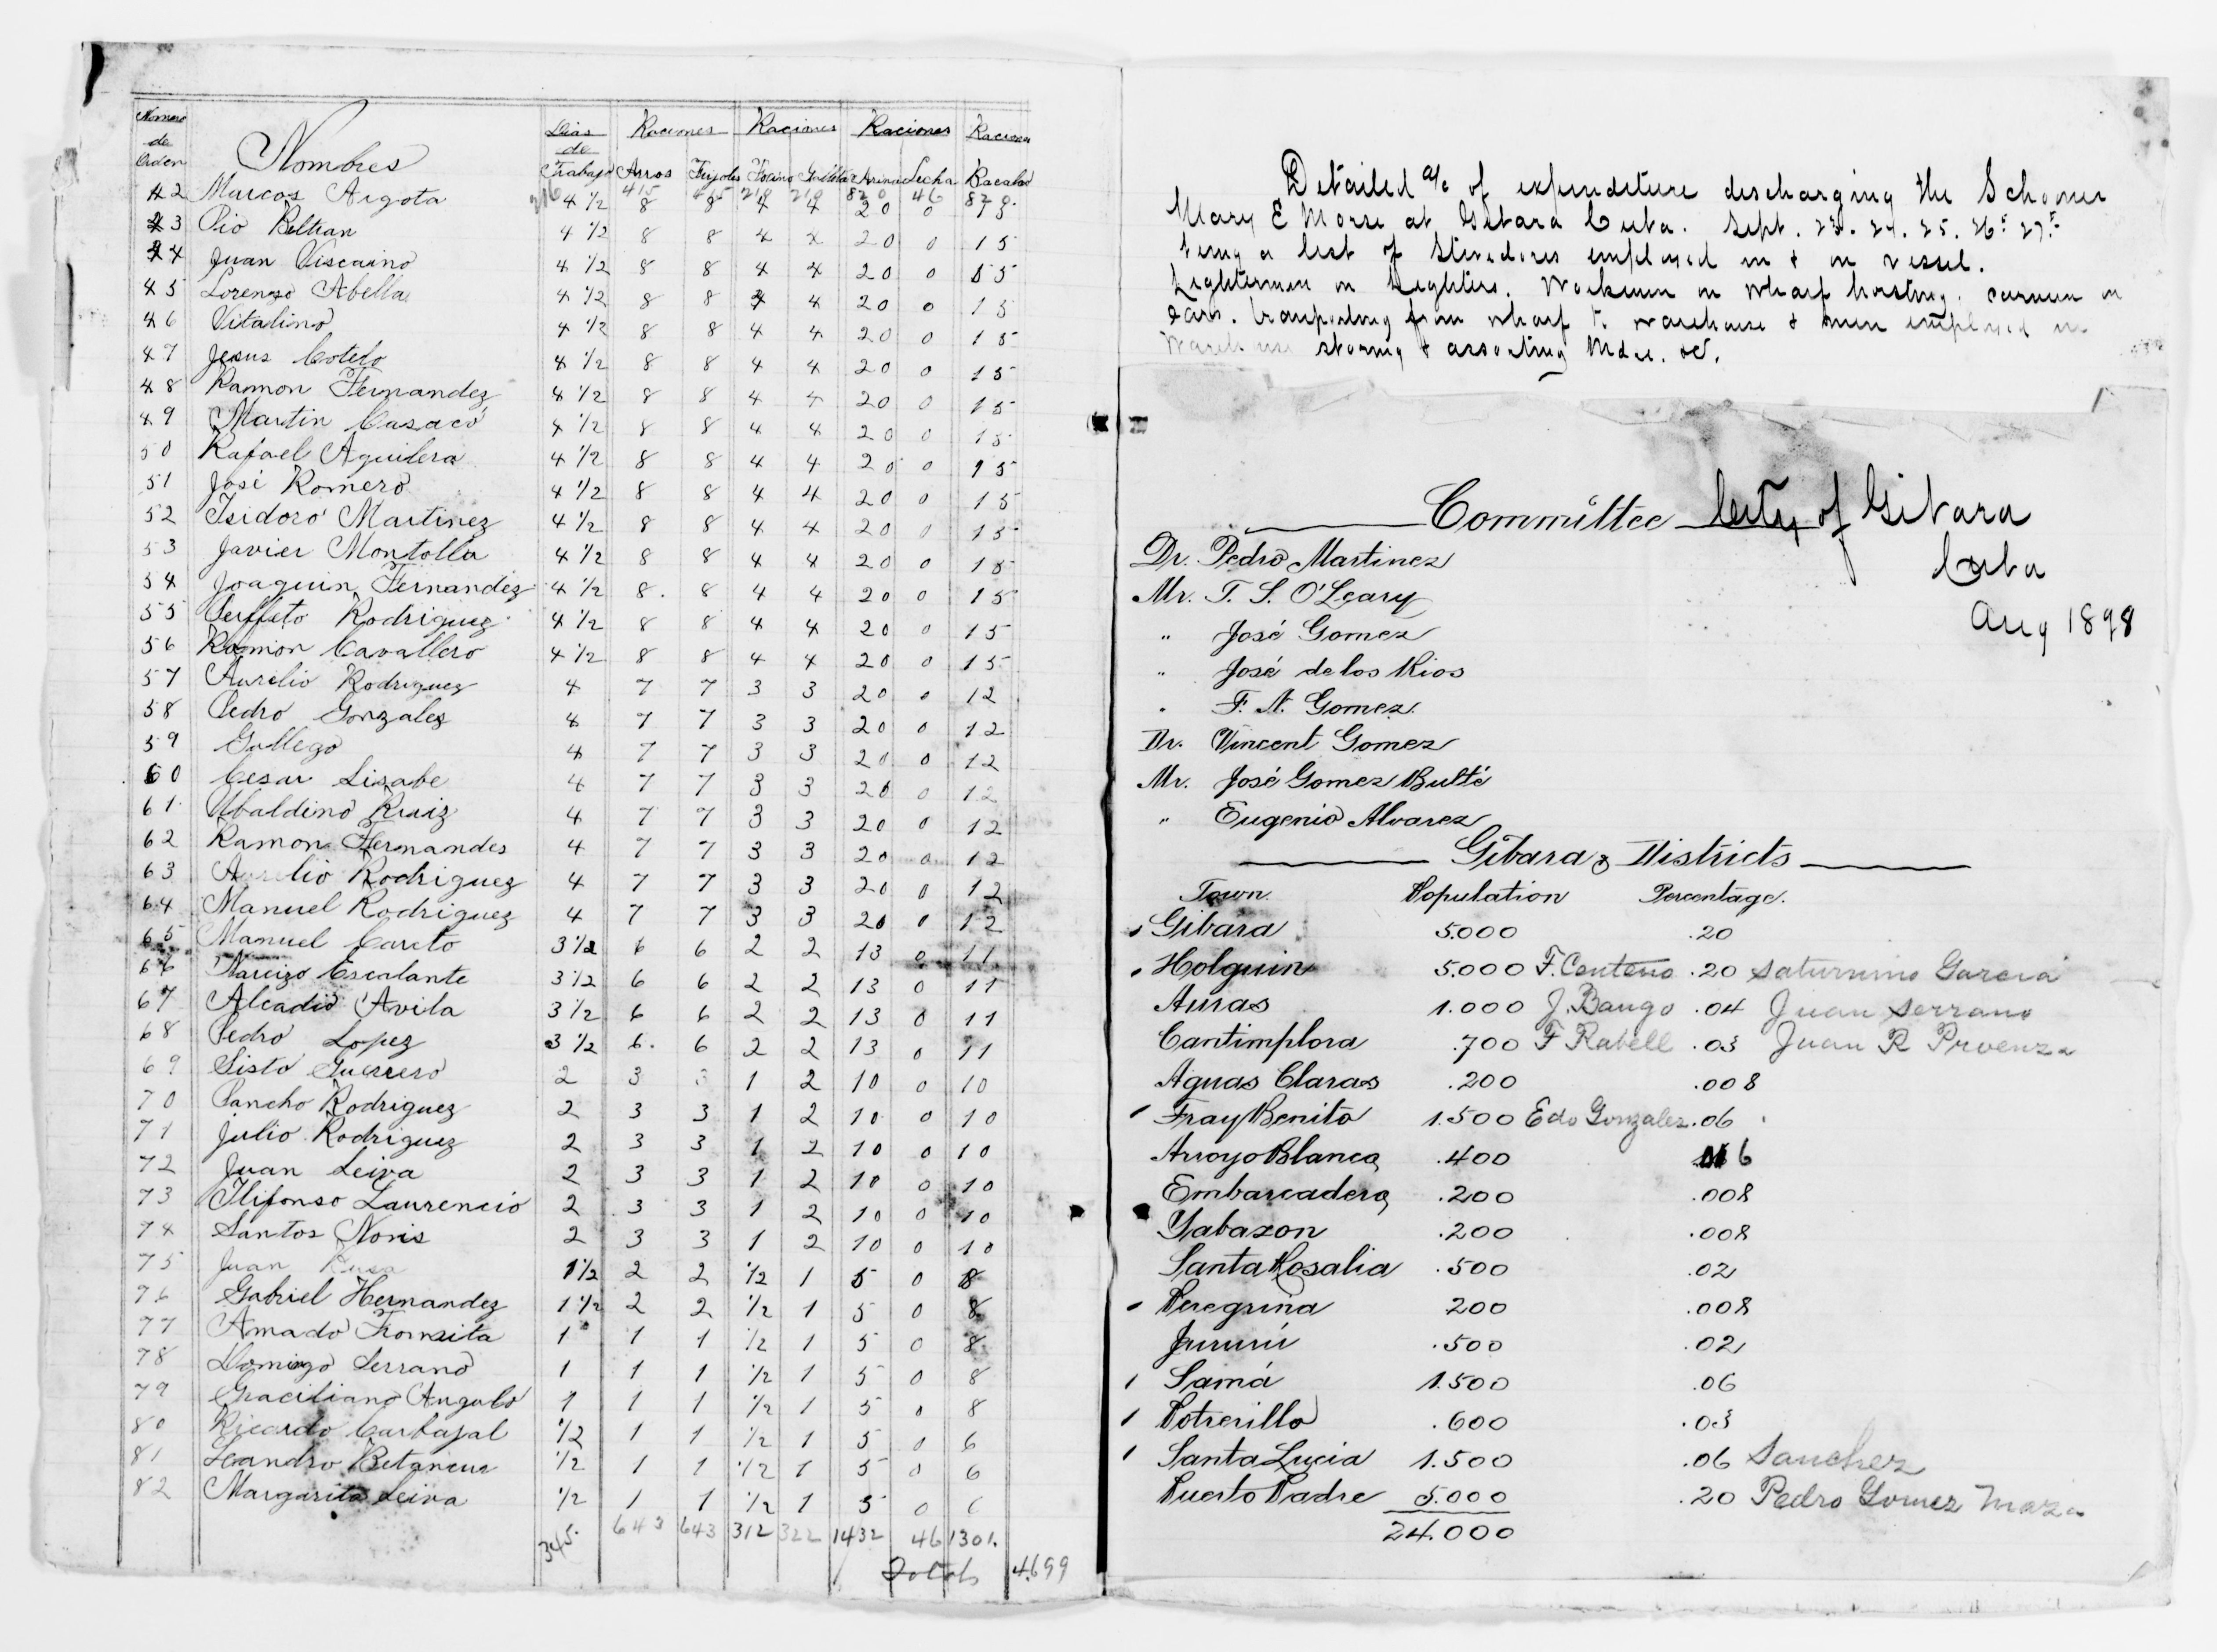 Numero de Orden Nombres Dias de Trabajo Raciones Arros Frijoles Raciones Tosino Galletas Raciones Arina Leche Raciones Bacalao
216 415 415 219 219 820 46 878
42 Marcos Argota 4 1/2 8 8 4 4 20 0 15
43 Pio Beltran 4 1/2 8 8 4 4 20 0 15
44 Juan Viscaino 4 1/2 8 8 4 4 20 0 15
45 Lorenzo Abella 4 1/2 8 8 4 4 20 0 15
46 Vitalino 4 1/2 8 8 4 4 20 0 15
47 Jesus Cotelo 4 1/2 8 8 4 4 20 0 15
48 Ramon Fernandez 4 1/2 8 8 4 4 20 0 15
49 Martin Casacó 4 1/2 8 8 4 4 20 0 15
50 Rafael Aguilera 4 1/2 8 8 4 4 20 0 15
51 José Romero 4 1/2 8 8 4 4 20 0 15
52 Isidoro Martinez 4 1/2 8 8 4 4 20 0 15
53 Javier Montolla 4 1/2 8 8 4 4 20 0 15
54 Joaquin Fernandez 4 1/2 8 8 4 4 20 0 15
55 Rodriguez 4 1/2 8 8 4 4 20 0 15
56 Ramon Cavallero 4 1/2 8 8 4 4 20 0 15
57 Aurelio Rodriguez 4 7 7 3 3 20 0 12
58 Pedro Gonzalez 4 7 7 3 3 20 0 12
59 Gallego 4 7 7 3 3 20 0 12
60 Cesar Lisabe 4 7 7 3 3 20 0 12
61 Ubaldino Ruiz 4 7 7 3 3 20 0 12
62 Ramon Fernandes 4 7 7 3 3 20 0 12
63 Aurelio Rodriguez 4 7 7 3 3 20 0 12
64 Manuel Rodriguez 4 7 7 3 3 20 0 12
65 Manuel Careto 3 1/2 6 6 2 2 13 0 11
66 Narcizo Escalante 3 1/2 6 6 2 2 13 0 11
67 Alcadio Avila 3 1/2 6 6 2 2 13 0 11
68 Pedro Lopez 3 1/2 6 6 2 2 13 0 11
69 Sisto Guerrero 2 3 3 1 2 10 0 10
70 Pancho Rodriguez 2 3 3 1 2 10 0 10
71 Julio Rodriguez 2 3 3 1 2 10 0 10
72 Juan Leiva 2 3 3 1 2 10 0 10
73 Ilifonso Laurencio 2 3 3 1 2 10 0 10
74 Santos Noris 2 3 3 1 2 10 0 10
75 Juan 1 1/2 2 2 1/2 1 5 0 8
76 Gabriel Hernandez 1 1/2 2 2 1/2 1 5 0 8
77 Amado Fromita 1 1 1 1/2 1 5 0 8
78 Domingo Serrano 1 1 1 1/2 1 5 0 8
79 Graciliano Angulo 1 1 1 1/2 1 5 0 8
80 Ricardo Carbajal 1/2 1 1 1/2 1 5 0 6
81 Leandro Betancur 1/2 1 1 1/2 1 5 0 6
82 Margarito Leiva 1/2 1 1 1/2 1 5 0 6
345. 643 643 312 322 1432 46 1301.
Totals 4699
Detailed a/c of expenditure discharging the Schooner
Mary E Morse at Gibara Cuba. Sept. 23. 24. 25. 26. 27.
being a list of Stevedores employed in & on vessel.
Lightermen on Lighters. Workmen on wharf hoisting. carmen on
Cars. transporting from wharf to warehouse & men employed in
Warehouse storing & assorting Mdse. &c.
Committee City of Gibara
Cuba
Aug 1898
Dr. Pedro Martinez
Mr. T. S. O'Leary
" José Gomez
" José de los Rios
" F. A. Gomez.
Dr. Vincent Gomez
Mr. José Gomez Bulté
" Eugenio Alvarez
Gibara & Districts
Town. Population Percentage.
Gibara 5.000 .20
Holguin 5.000 F. Centeno .20 Saturnino Garcia
Auras 1.000 J. Baugo .04 Juan Serrano
Cantimplora .700 F Rabell .03 Juan R Provenza
Aguas Claras .200 .008
Fray Benito 1.500 Edo Gonzalez .06
Arroyo Blanco .400 6
Embarcadero .200 .008
Yabazon .200 .008
Santa Rosalia .500 .02
Peregrina 200 .008
Jururú .500 .02
Samá 1.500 .06
Potrerillo .600 .03
Santa Lucia 1.500 .06 Sanchez
Puerto Padre 5.000 .20 Pedro Gomez Maza
24.000